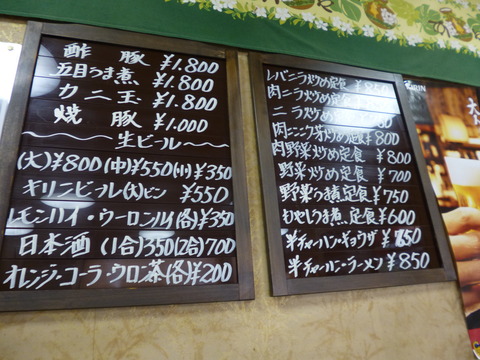 酢豚 ¥1.800
五目うま煮 ¥1.800
カニ玉 ¥1.800
焼豚 ¥1.000
〜生ビール〜
(大)¥800(中)¥550(小)¥350
キリンビール(大)ビン ¥550
レモンハイ・ウーロンハイ(各)¥350
日本酒(1合)350(2合)700
オレンジ・コーラ・ウーロン茶(各)¥200
レバニラ炒め定食 ¥850
肉ニラ炒め定食 ¥
ニラ炒め定食 ¥
肉ニンニク芽炒め定食 ¥800
肉野菜炒め定食 ¥800
野菜炒め定食 ¥700
野菜うま煮定食 ¥750
もやしうま煮定食 ¥600
半チャーハン・ギョウザ ¥
半チャーハン・ラーメン ¥850
KIRIN
大